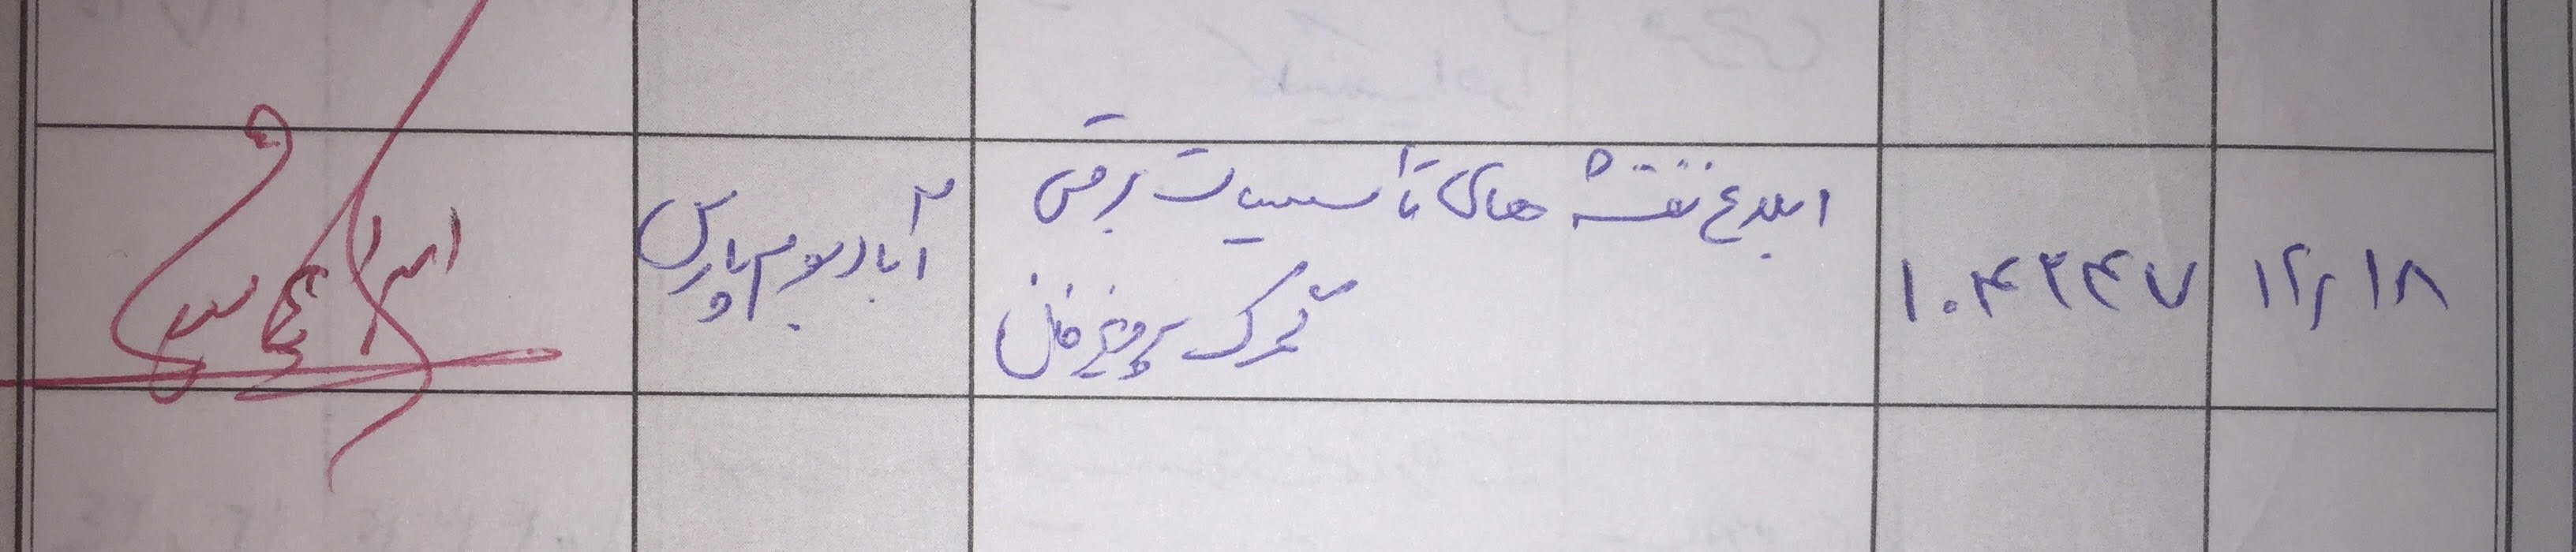 ۱۲/۱۸
۱۰۴۲۴۷
ابلاغ نقشه های تاسیسات برقی
گمرک پرویزخان
آباد بوم پارس